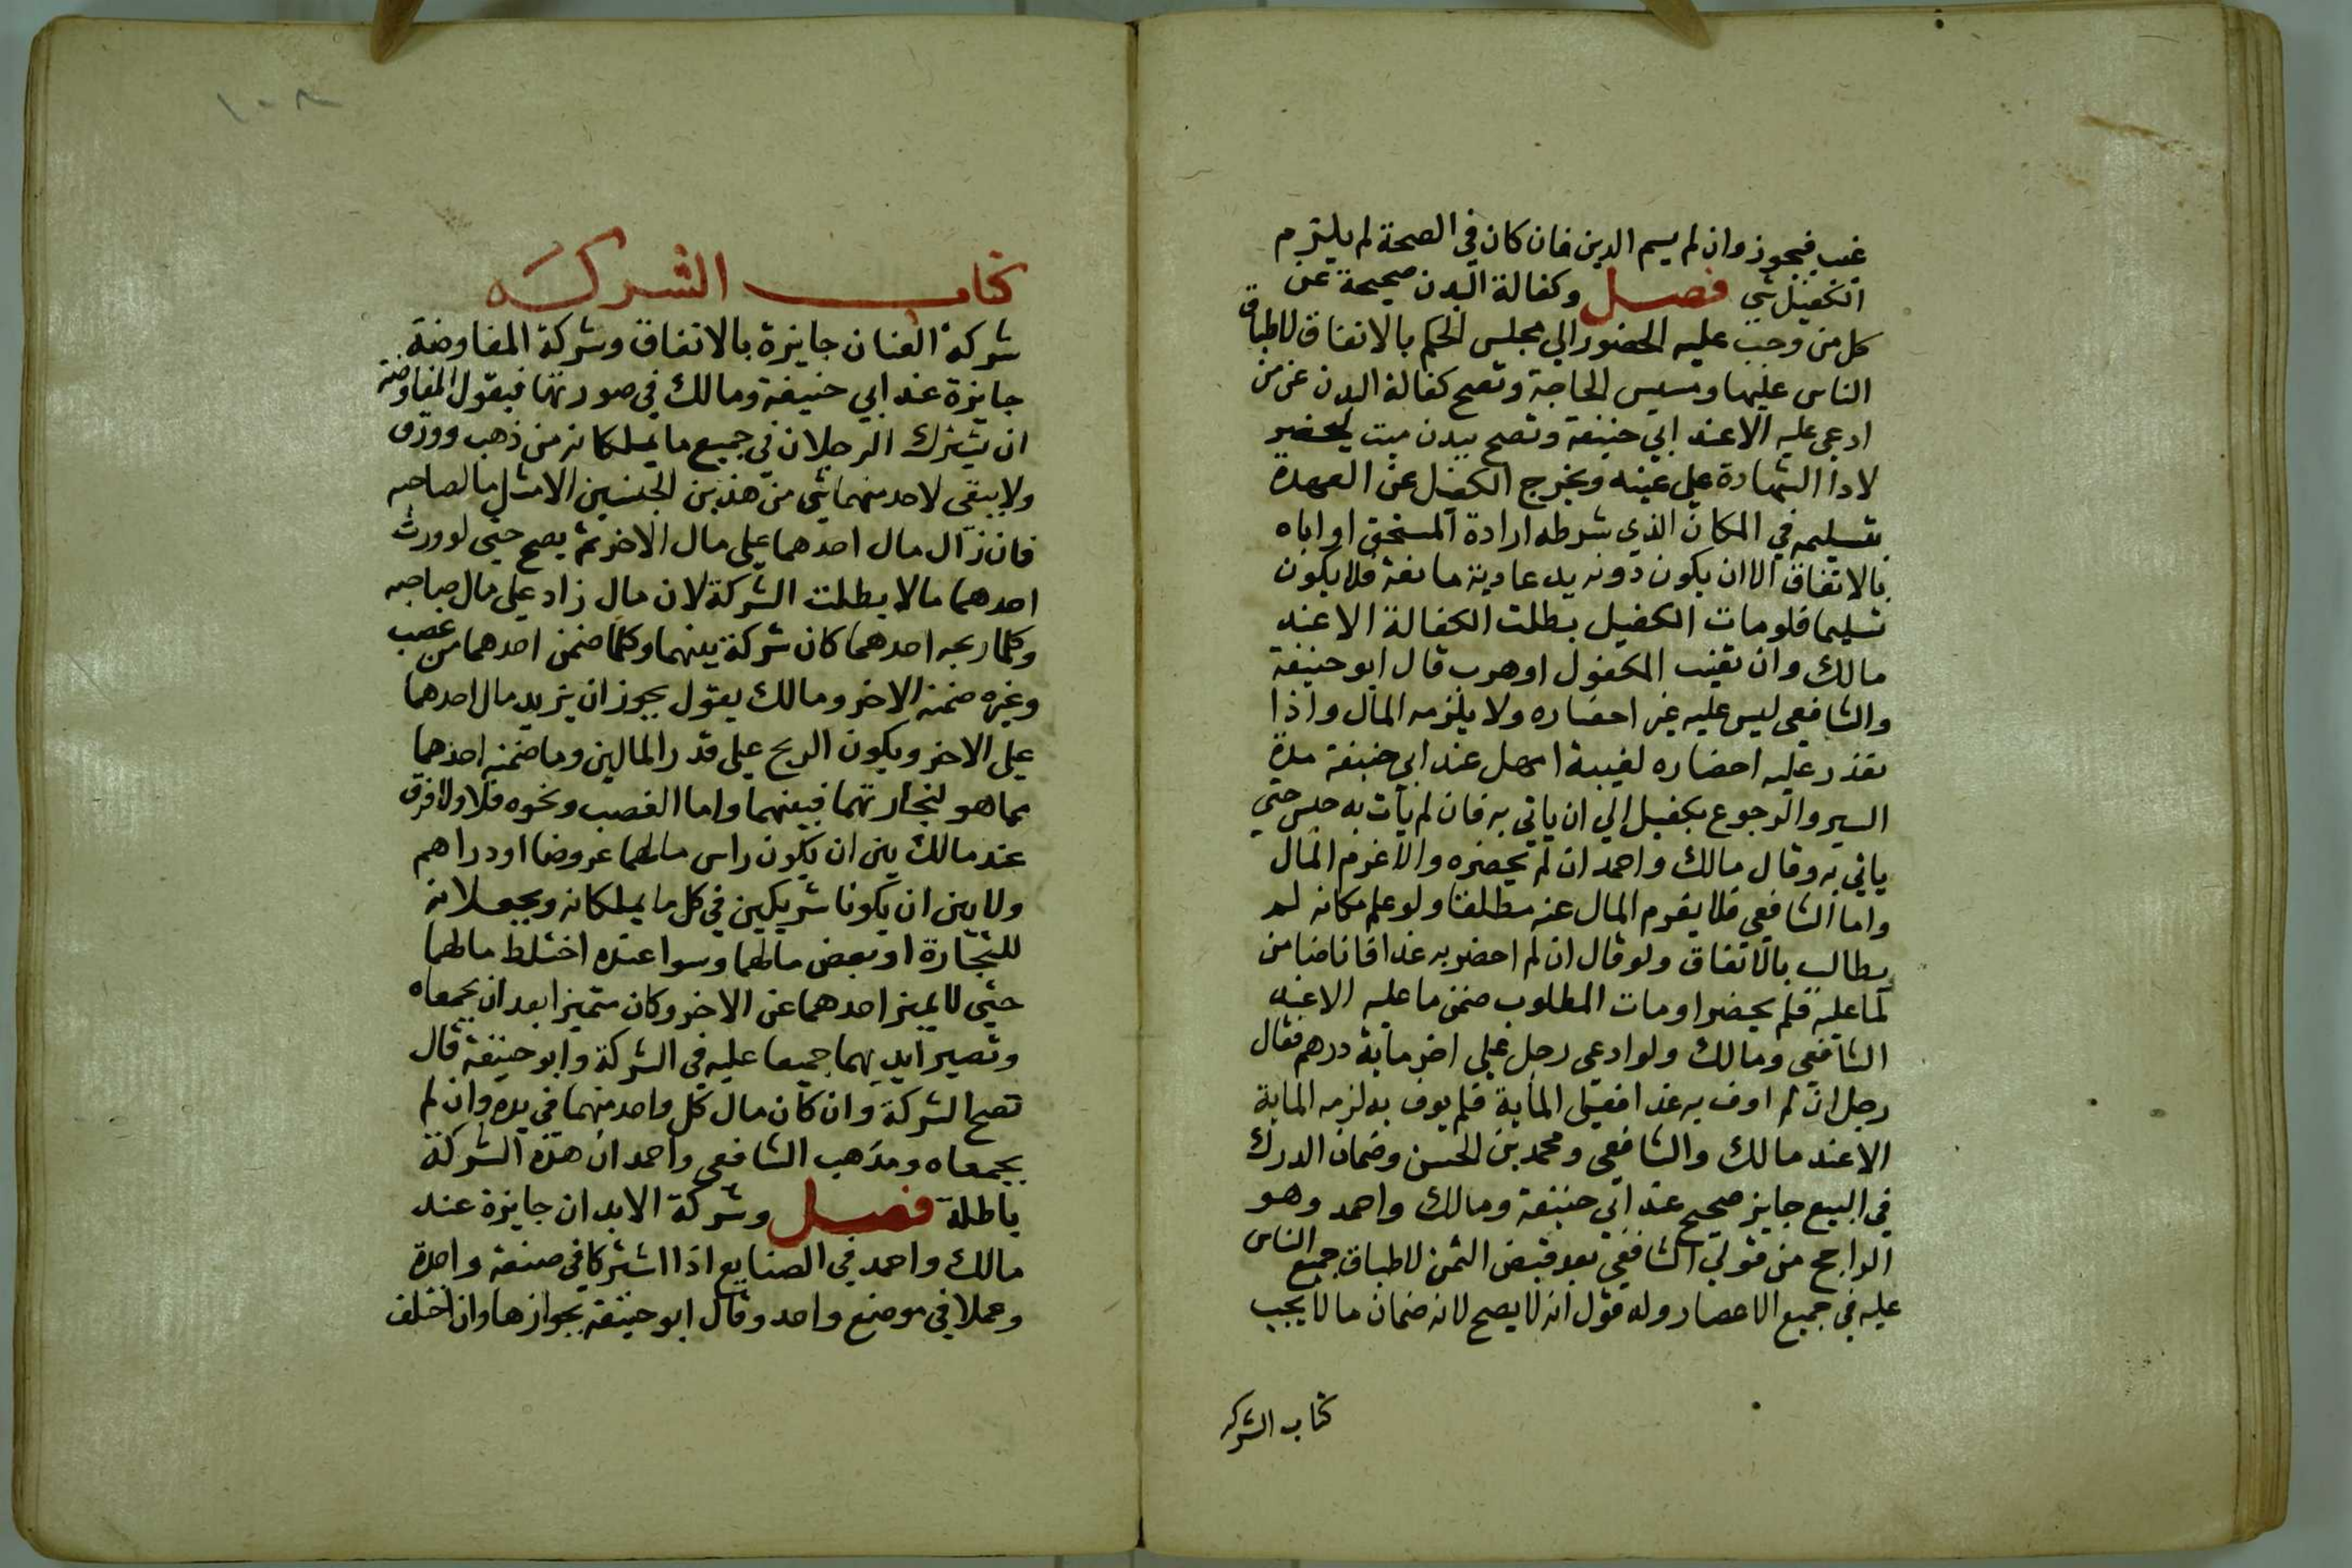 غيب فيجوز وان لم يسم الدين فان كان في الصحة لم يلتزم
الكفيل شي فصل وكفالة البدن صحيحة عن
كل من وجب عليه الحضور الي مجلس الحكم بالاتفاق لاطباق
الناس عليها ومسيس الحاجة وتصح كفالة البدن عن من
ادعي عليه الا عند ابي حنيفة وتصح ببدن ميت ليحضر
لادا الشهادة علي عينه ويخرج الكفيل عن العهدة
بتسليمه في المكان الذي شرطه ارادة المستحق او اباه
بالاتفاق الا ان يكون دونه يد عادية مانعة فلا يكون
تسليما فلو مات الكفيل بطلت الكفالة الا عند
مالك وان تغيب المكفول او هرب قال ابو حنيفة
والشافعي ليس عليه غير احضاره ولا يلزمه المال واذا
تعذر عليه احضاره لغيبة امهل عند ابي حنيفة مدة
السير والرجوع بكفيل الي ان ياتي به فان لم يات به حبس حتي
ياتي به وقال مالك واحمد ان لم يحضره والا غرم المال
واما الشافعي فلا يغرم المال عنه مطلقا ولو علم مكانه لم
يطالب بالاتفاق ولو قال ان لم احضر به غدا فانا ضامن
لما عليه فلم يحضر او مات المطلوب ضمن ما عليه الا عند
الشافعي ومالك ولو ادعي رجل علي اخر ماية درهم فقال
رجل ان لم اوف به غدا فعلي الماية فلم يوف به لزمه الماية
الا عند مالك والشافعي ومحمد بن الحسن وضمان الدرك
في البيع جايز صحيح عند ابي حنيفة ومالك واحمد وهو
الراجح من قولي الشافعي بعد قبض الثمن لاطباق جميع الناس
عليه في جميع الاعصار وله قول انه لا يصح لانه ضمان ما لا يجب
كتاب الشركه
١٠٨
كتاب الشركه
شركة العنان جايزة بالاتفاق وشركة المفاوضة
جايزة عند ابي حنيفة ومالك في صورتها فيقول المفاوضة
ان يشترك الرجلان في جميع ما يملكانه من ذهب وورق
ولا يبقي لاحد منهما شي من هذين الجنسين الا مثل ما لصاحبه
فان زال مال احدهما علي مال الاخر ثم يصح حتي لو ورث
احدهما مالا بطلت الشركة لان مال زاد علي مال صاحبه
وكلما ربحه احدهما كان شركة بينهما وكلما ضمن احدهما من غصب
وغيره ضمنه الاخر ومالك يقول يجوز ان يزيد مال احدهما
علي الاخر ويكون الربح علي قدر المالين وما ضمنه احدهما
مما هو لتجارتهما فبينهما واما الغصب ونحوه فلا ولا فرق
عند مالك بين ان يكون راس مالهما عروضا او دراهم
ولا بين ان يكونا شريكين في كل ما يملكانه ويجعلانه
للتجارة او بعض مالهما وسوا عنده اختلط مالهما
حتي لا يميز احدهما عن الاخر وكان متميزا بعد ان يجمعاه
وتصير ايديهما جميعا عليه في الشركة وابو حنيفة قال
تصح الشركة وان كان مال كل واحد منهما في يده وان لم
يجمعاه ومذهب الشافعي واحمد ان هذه الشركة
باطلة فصل وشركة الابدان جايزة عند
مالك واحمد في الصنايع اذا اشتركا في صنعة واحدة
وعملا في موضع واحد وقال ابو حنيفة بجوازها وان اختلف